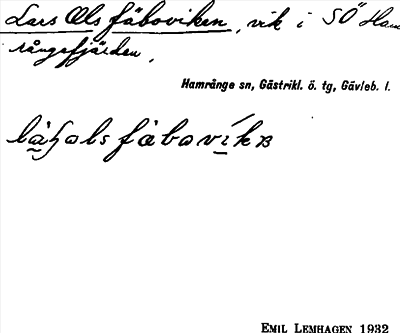 Lars Ols fäboviken, vik i SÖ Ham
rångefjärden,
Hamrånge sn, Gästrikl. ö. tg, Gävleb. l.
fäbovik
EMIL LEMHAGEN 1932